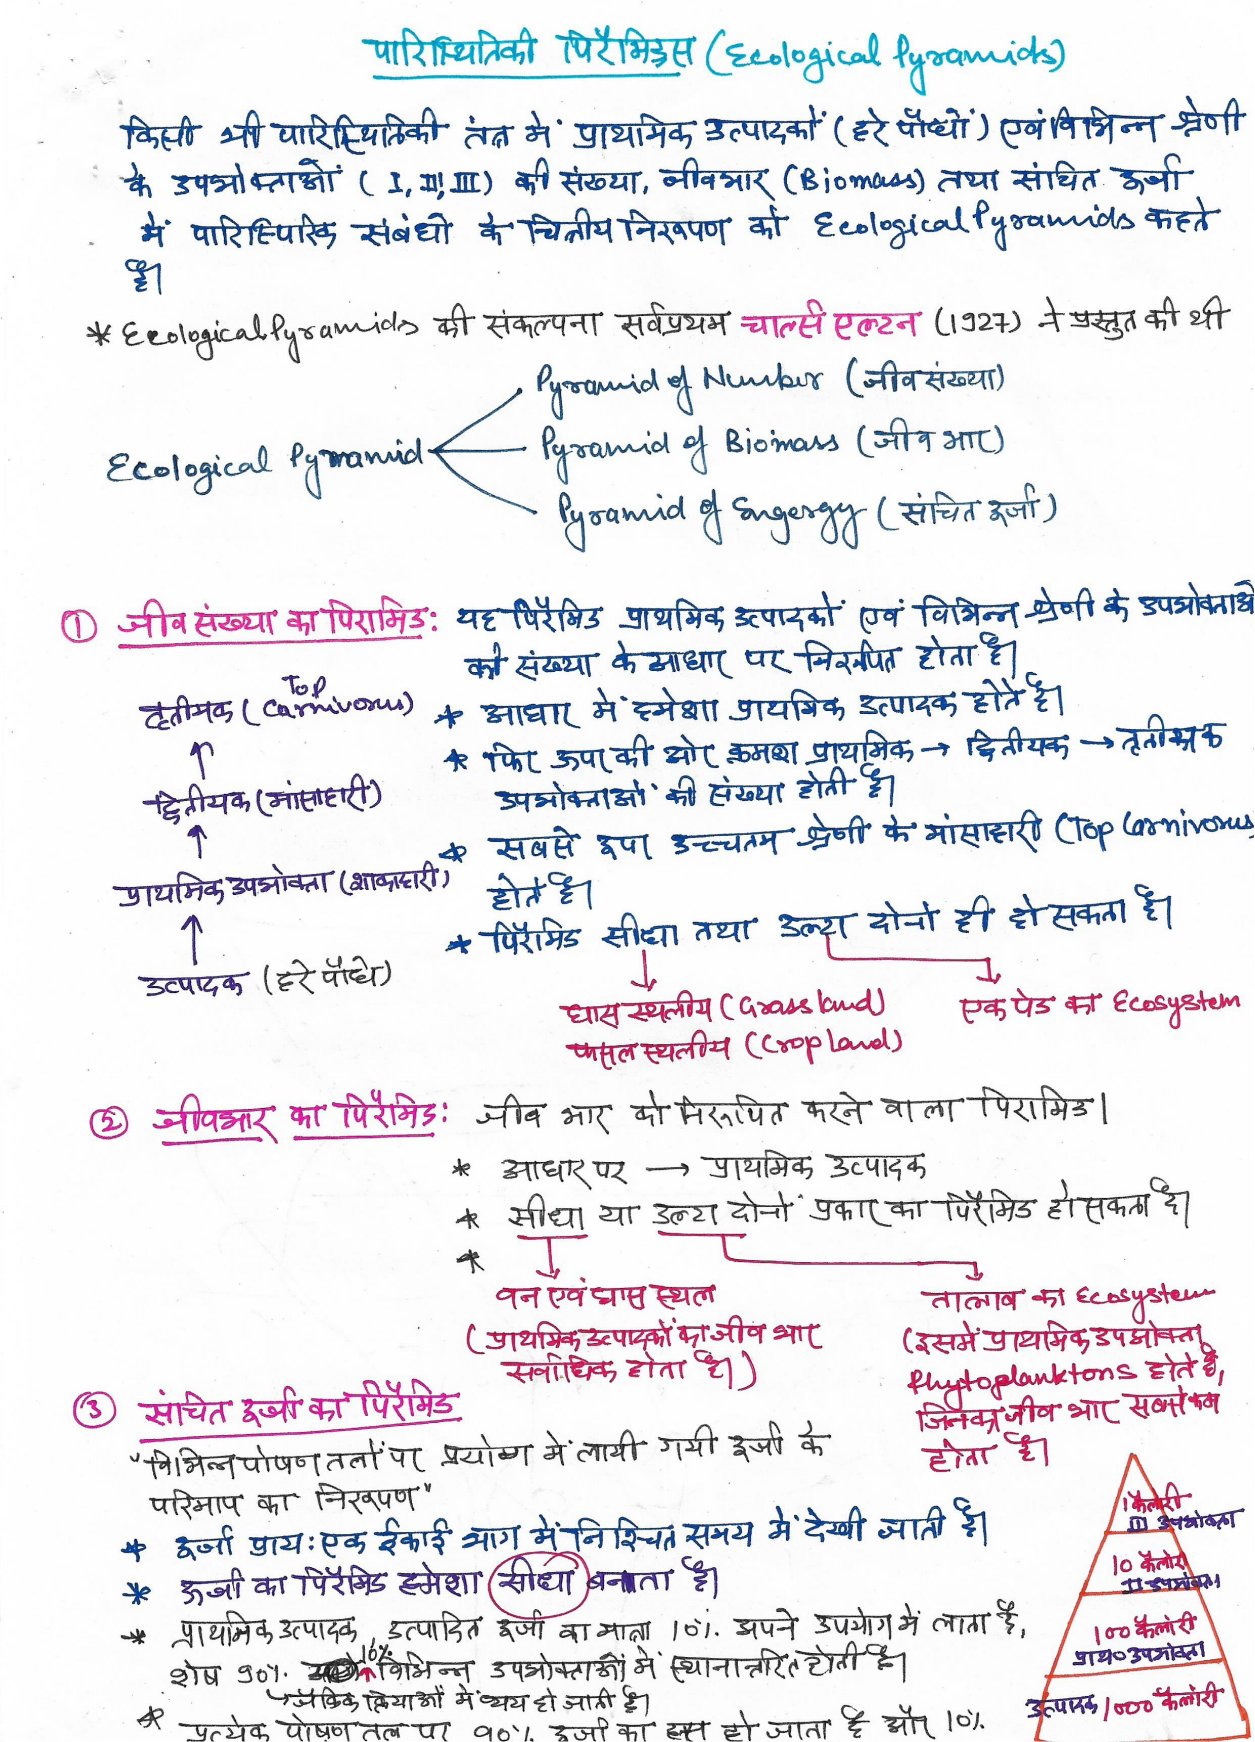 पारिस्थितिकी पिरैमिड्स (Ecological Pyramids)
किसी भी पारिस्थितिकी तंत्र में प्राथमिक उत्पादकों (हरे पौधों) एवं विभिन्न श्रेणी
के उपभोक्ताओं (I, II, III) की संख्या, जीवभार (Biomass) तथा संचित ऊर्जा
में पारिस्परिक संबंधो के चित्रीय निरूपण को Ecological Pyramids कहते
हैं।
* Ecological Pyramids की संकल्पना सर्वप्रथम चार्ल्स एल्टन (1927) ने प्रस्तुत की थी
Pyramid of Number (जीव संख्या)
Ecological Pyramid
Pyramid of Biomass (जीव भार)
Pyramid of Engergy (संचित ऊर्जा)
① जीव संख्या का पिरामिड: यह पिरैमिड प्राथमिक उत्पादकों एवं विभिन्न श्रेणी के उपभोक्ताओं
की संख्या के आधार पर निरूपित होता है।
* आधार में हमेशा प्राथमिक उत्पादक होते है।
* फिर ऊपर की ओर क्रमश प्राथमिक → द्वितीयक → तृतीयक
उपभोक्ताओं की संख्या होती है।
* सबसे ऊपर उच्चतम श्रेणी के मांसाहारी (Top Carnivorus
होते है।
* पिरैमिड सीधा तथा उल्टा दोनो ही हो सकता है।
घास स्थलीय (Grassland)
फसल स्थलीय (Cropland)
एक पेड का Ecosystem
तृतीयक (Top Carnivorus)
द्वितीयक (मांसाहारी)
प्राथमिक उपभोक्ता (शाकाहारी)
उत्पादक (हरे पौधे)
② जीवभार का पिरैमिड: जीव भार को निरूपित करने वाला पिरामिड।
* आधार पर → प्राथमिक उत्पादक
* सीधा या उल्टा दोनों प्रकार का पिरैमिड हो सकता है।
*
वन एवं घास स्थल
(प्राथमिक उत्पादकों का जीव भार
सर्वाधिक होता है।)
तालाब का Ecosystem
(इसमें प्राथमिक उपभोक्ता
Phytoplanktons होते है,
जिनका जीव भार सबसे कम
होता है।
③ संचित ऊर्जा का पिरैमिड
"विभिन्न पोषण तलों पर प्रयोग में लायी गयी ऊर्जा के
परिमाप का निरूपण"
* ऊर्जा प्राय: एक ईकाई भाग में निश्चित समय में देखी जाती है।
* ऊर्जा का पिरैमिड हमेशा सीधा बनाता है।
* प्राथमिक उत्पादक, उत्पादित ऊर्जा का मात्रा 10% अपने उपयोग में लाता है,
शेष 90% 10% विभिन्न उपभोक्ताओं में स्थानान्तरित होती है।
जैविक क्रियाओं में व्यय हो जाती है।
* प्रत्येक पोषण तल पर 90% ऊर्जा का ह्रास हो जाता है और 10%
1 कैलोरी
III उपभोक्ता
10 कैलोरी
II उपभोक्ता
100 कैलोरी
प्राथ० उपभोक्ता
उत्पादक 1000 कैलोरी